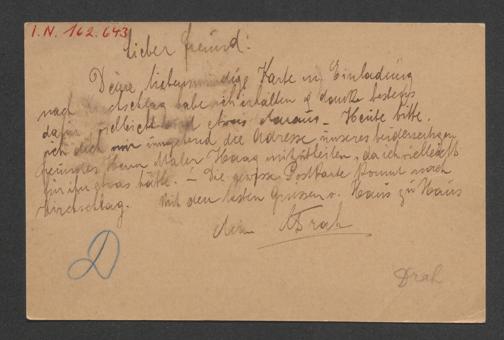 I.N. 162.643
Lieber Freund!
Deine liebenswürdige Karte m. Einladung
nach Kirchschlag habe ich erhalten & danke bestens
dafür vielleicht wird etwas daraus – Heute bitte
ich dich mir umgehend die Adresse unseres beiderseitigen
Freundes Herrn Maler Haag mitzutheilen, da ich vielleicht
für ihn etwas hätte. – Die gewisse Postkarte kommt nach
Kirchschlag. Mit den besten Grüssen v. Haus zu Haus
dein Drah
D
Drah